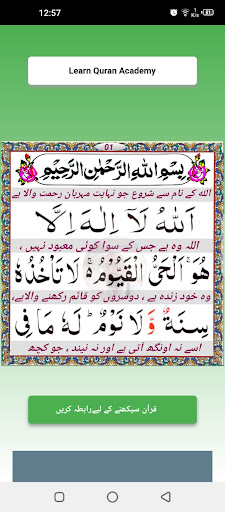 12:57
1 K/s
81
Learn Quran Academy
01
بِسْمِ اللهِ الرَّحْمٰنِ الرَّحِيْمِ
اللہ کے نام سے شروع جو نہایت مہربان رحمت والا ہے
اَللهُ لَاۤ اِلٰهَ اِلَّا
اللہ وہ ہے جس کے سوا کوئی معبود نہیں ،
هُوَۚ اَلْحَیُّ الْقَیُّوْمُ ەۚ لَا تَاْخُذُهٗ
وہ خود زندہ ہے ، دوسروں کو قائم رکھنے والاہے،
سِنَةٌ وَّ لَا نَوْمٌؕ لَهٗ مَا فِی
اسے نہ اونگھ آتی ہے اور نہ نیند ، جو کچھ
قرآن سیکھنے کے لیےرابطہ کریں